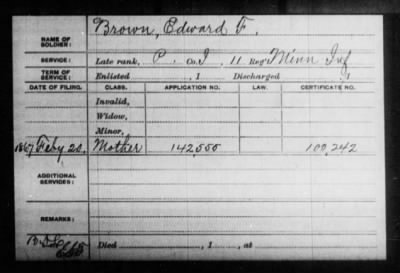 NAME OF SOLDIER: Brown, Edward F.
SERVICE: Late rank, P. Co. I, 11 Reg't Minn Inf
TERM OF SERVICE: Enlisted , 1 Discharged , 1
DATE OF FILING. CLASS. APPLICATION NO. LAW. CERTIFICATE NO.
Invalid,
Widow,
Minor,
1867 Feby 20, Mother 142,555 100,242
ADDITIONAL SERVICES:
REMARKS:
Died , 1 , at